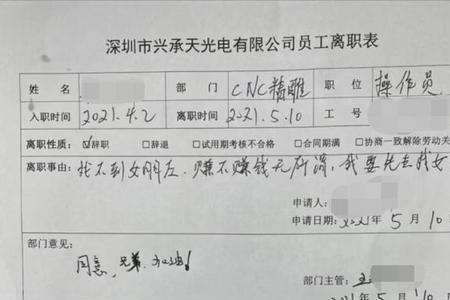 深圳市兴承天光电有限公司员工离职表
姓 名 部 门 CNC精雕 职 位 操作员
入职时间 2021.4.2 离职时间 2021.5.10 工 号
离职性质: ☑辞职 □辞退 □试用期考核不合格 □合同期满 □协商一致解除劳动关
离职事由: 找不到女朋友. 赚不赚钱无所谓, 我要先去找女
申请人:
申请日期: 2021年 5 月 10
部门意见:
同意, 兄弟, 加油!
部门主管:
2021年 5 月 10